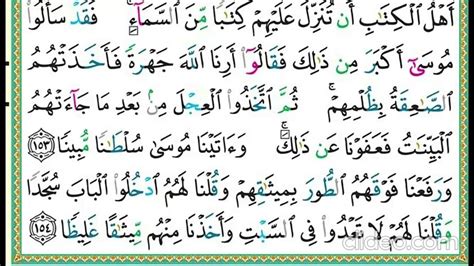 أَهْلُ ٱلْكِتَـٰبِ أَن تُنَزِّلَ عَلَيْهِمْ كِتَـٰبًا مِّنَ ٱلسَّمَآءِ ۚ فَقَدْ سَأَلُوا۟
مُوسَىٰٓ أَكْبَرَ مِن ذَٰلِكَ فَقَالُوٓا۟ أَرِنَا ٱللَّهَ جَهْرَةً فَأَخَذَتْهُمُ
ٱلصَّـٰعِقَةُ بِظُلْمِهِمْ ۚ ثُمَّ ٱتَّخَذُوا۟ ٱلْعِجْلَ مِنۢ بَعْدِ مَا جَآءَتْهُمُ
ٱلْبَيِّنَـٰتُ فَعَفَوْنَا عَن ذَٰلِكَ ۚ وَءَاتَيْنَا مُوسَىٰ سُلْطَـٰنًا مُّبِينًا ١٥٣
وَرَفَعْنَا فَوْقَهُمُ ٱلطُّورَ بِمِيثَـٰقِهِمْ وَقُلْنَا لَهُمُ ٱدْخُلُوا۟ ٱلْبَابَ سُجَّدًا
وَقُلْنَا لَهُمْ لَا تَعْدُوا۟ فِى ٱلسَّبْتِ وَأَخَذْنَا مِنْهُم مِّيثَـٰقًا غَلِيظًا ١٥٤
clideo.com